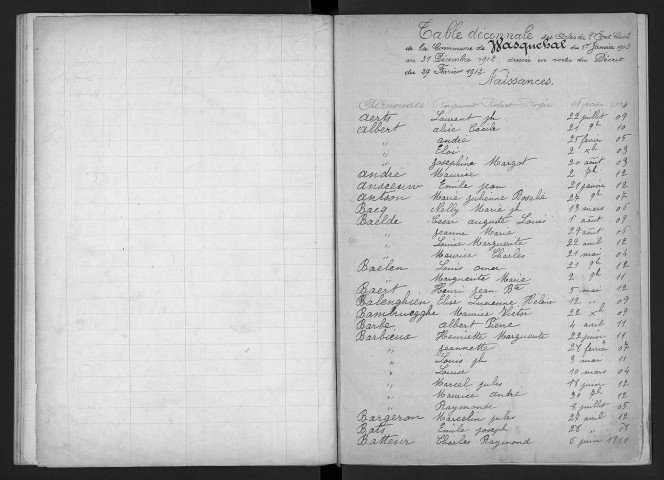 Table décennale des Actes de l'Etat Civil
de la Commune de Wasquehal du 1er Janvier 1903
au 31 Décembre 1912, dressée en vertu du Décret
du 29 Février 1912.
Naissances.
Aerts Laurent jh 22 juillet 09
Albert Alice Cécile 21 9b 10
" André 25 février 05
" Eloi 2 xb 03
" Joséphine Margot 20 août 03
André Maurice 2 7b 12
Ansceeuw Emile Jean 21 janvier 12
Antson Marie Julienne Rosalie 27 9b 07
Bacq Nelly Marie jh 13 mars 06
Baelde César Auguste Louis 1er août 09
" Jeanne Marie 29 août 06
" Louise Marguerite 22 avril 12
" Maurice Charles 21 mai 04
Baëlen Louis Omer 21 9b 12
" Marguerite Marie 2 9b 11
Baërt Henri Jean Bte 5 mai 12
Balenghien Elise Lucienne Hélène 12 " 09
Bambrugghe Maurice Victor 22 xb 09
Barbe Albert Pierre 4 avril 11
Barbieux Henriette Marguerite 22 juin 11
" Jeannette 28 février 07
" Louis jh 3 mai 11
" Louise 10 mars 04
" Marcel Jules 18 juin 12
" Maurice André 30 7b 12
" Raymonde 6 juillet 05
Bargeron Marcelin Jules 27 avril 12
Bats Emile Joseph 28 "
Batteur Charles Raymond 6 juin